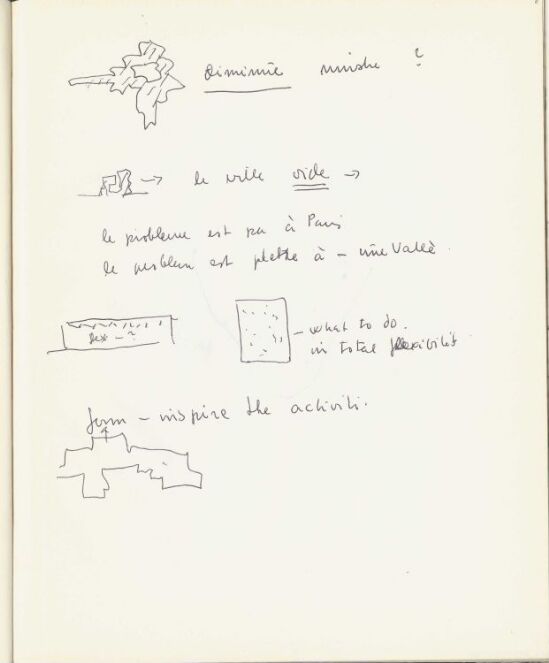 diminue ?
le ville vide →
le probleme est pa à Paris
le problem est à – une Vallè.
– what to do.
in total flexibilit
form – inspire the activiti.